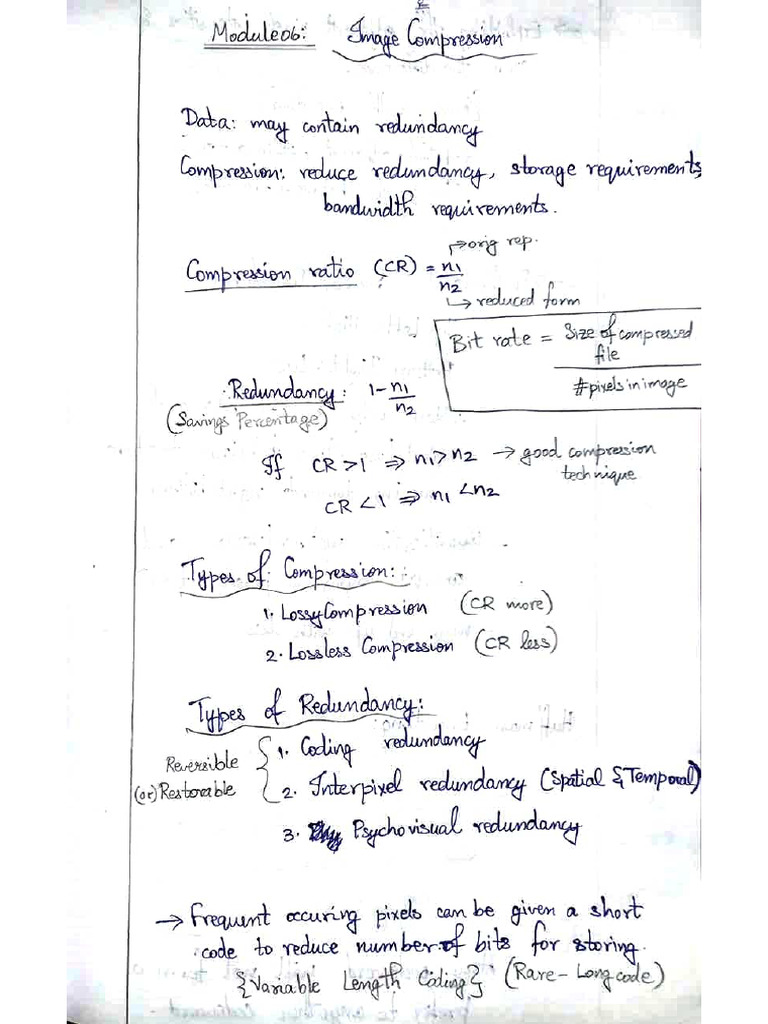 Module 06: Image Compression
Data: may contain redundancy
Compression: reduce redundancy, storage requirements,
bandwidth requirements.
→ orig rep.
Compression ratio (CR) = n1/n2
↳ reduced form
Bit rate = Size of compressed file / #pixels in image
Redundancy: 1 - n1/n2
(Savings Percentage)
If CR > 1 ⇒ n1 > n2 → good compression
technique
CR < 1 ⇒ n1 < n2
Types of Compression:
1. Lossy Compression (CR more)
2. Lossless Compression (CR less)
Types of Redundancy:
Reversible (or) Restorable { 1. Coding redundancy
2. Interpixel redundancy (Spatial & Temporal)
3. Psychovisual redundancy
→ Frequent occuring pixels can be given a short
code to reduce number of bits for storing.
{Variable Length Coding} (Rare - Long code)